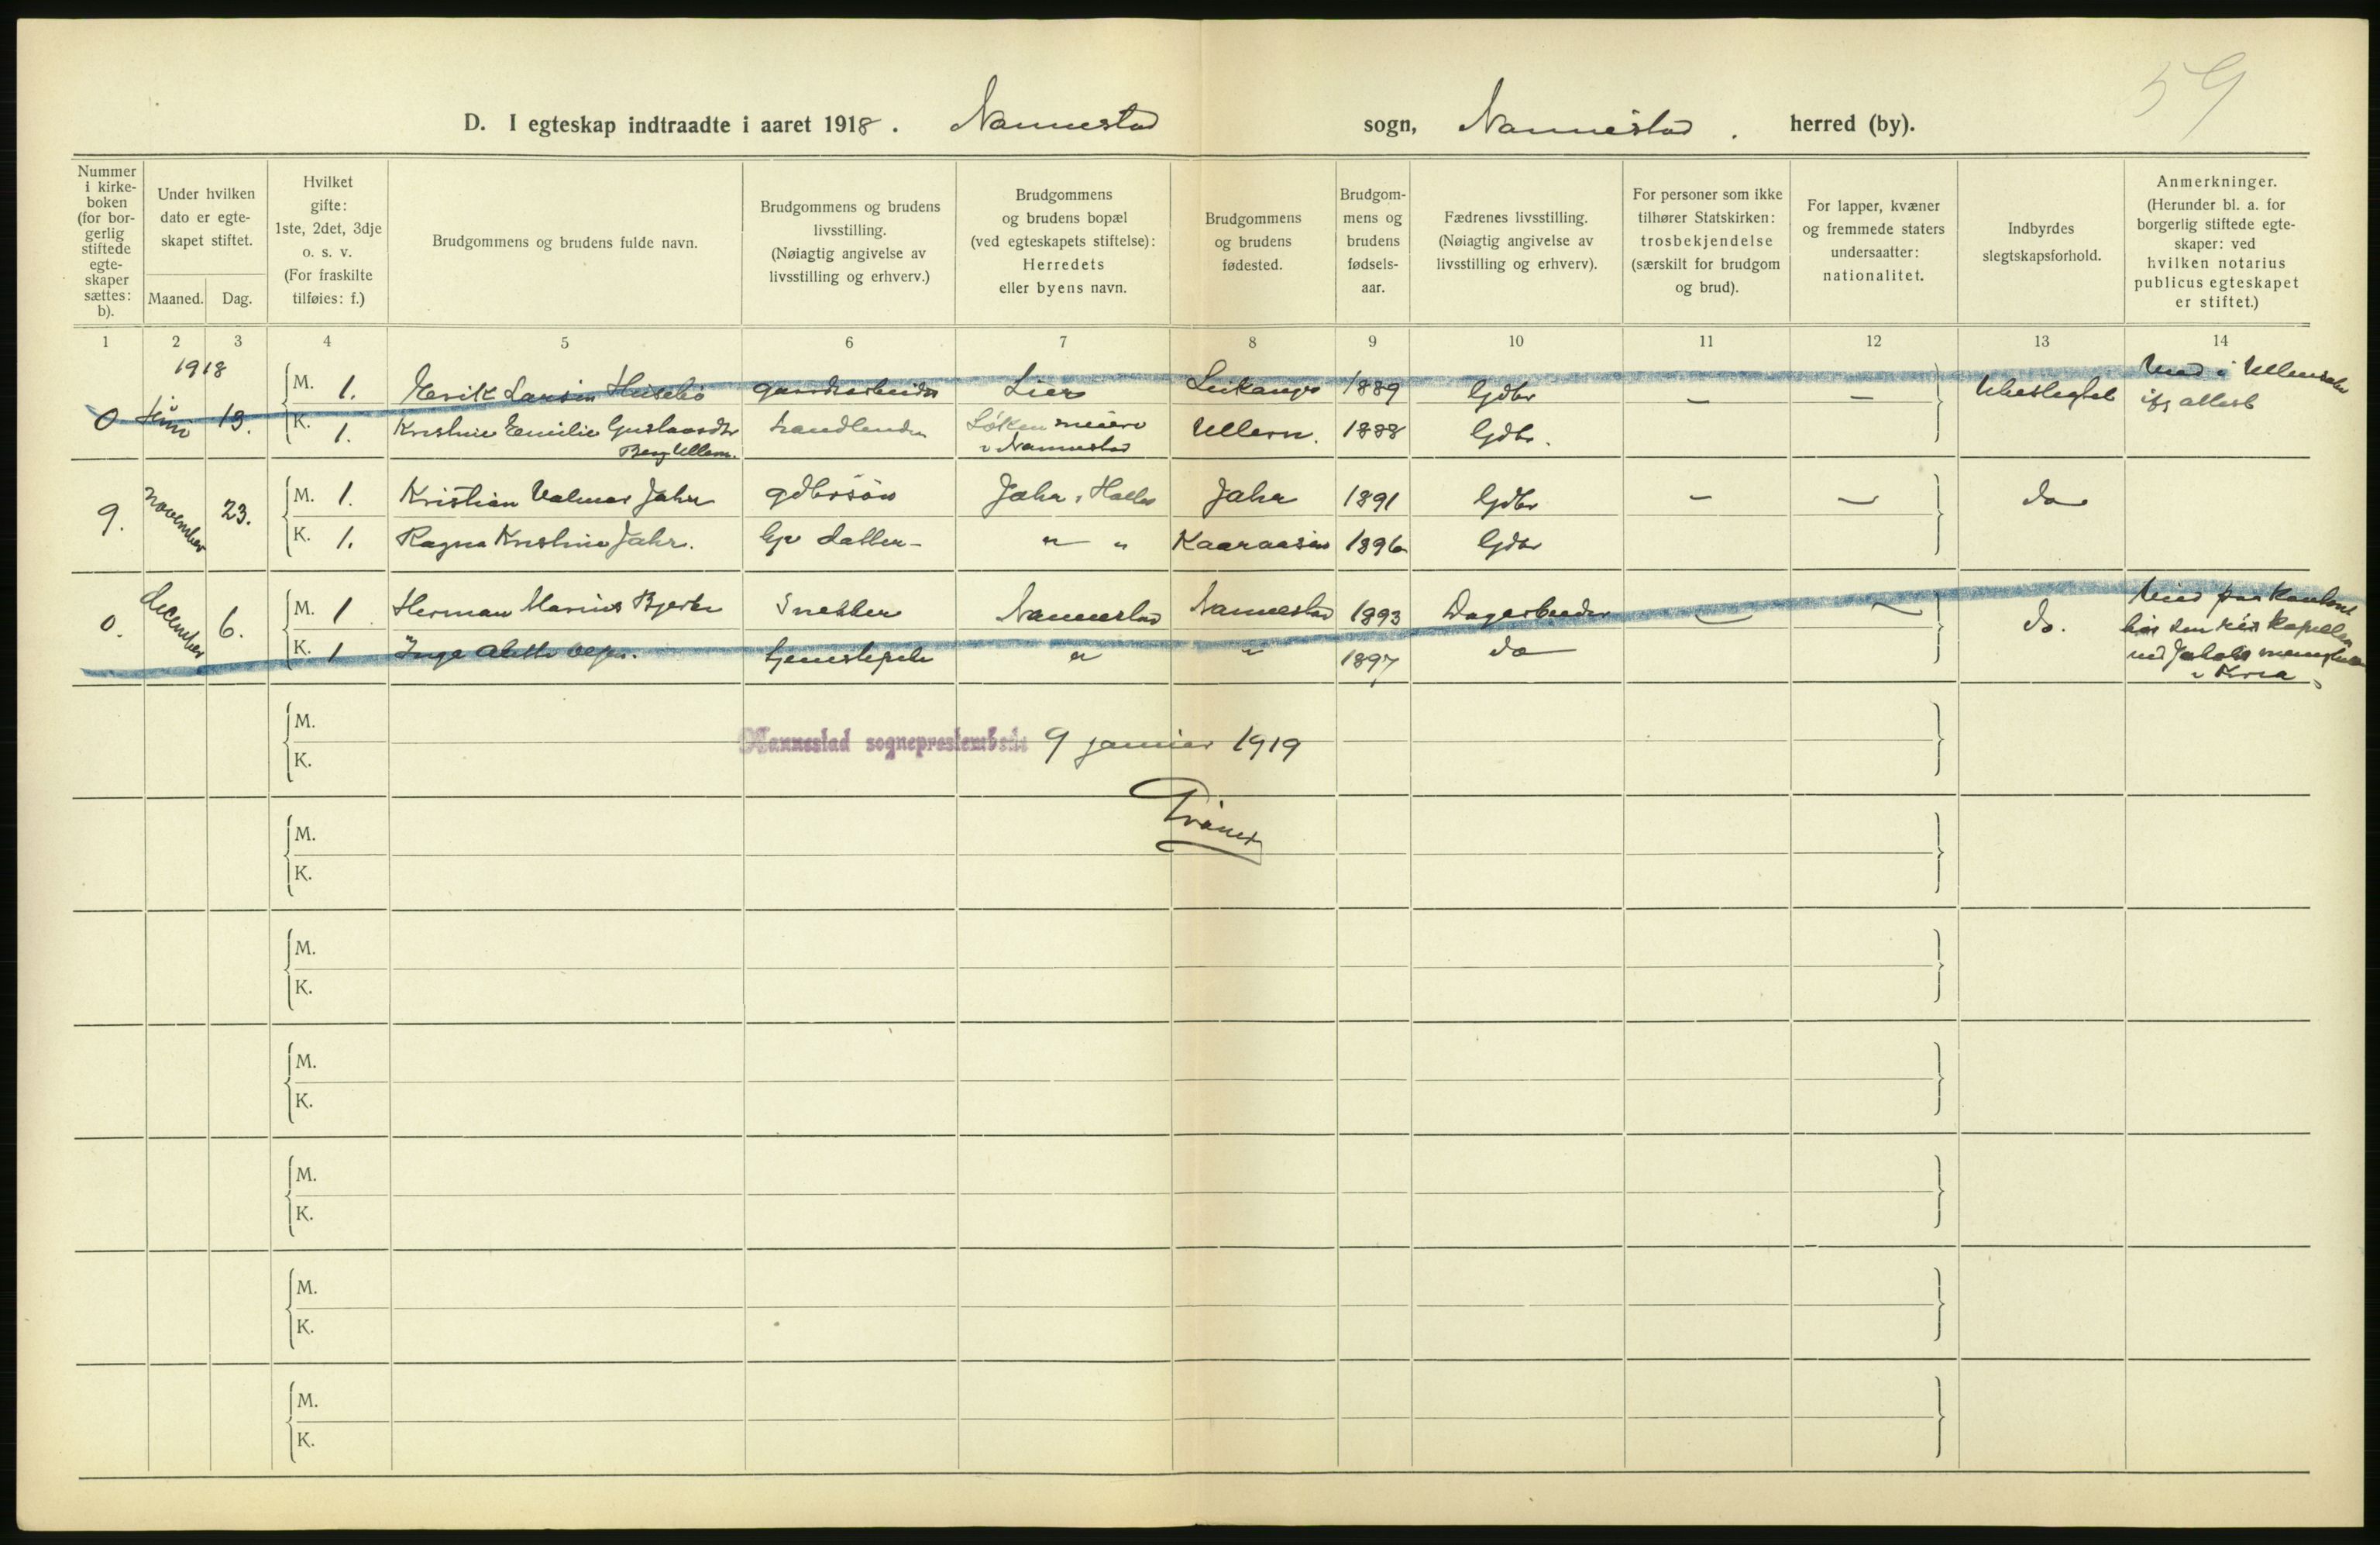 59
D. I egteskap indtraadte i aaret 1918. Nannestad sogn, Nannestad. herred (by).
Nummer i kirke-boken (for bor-gerlig stiftede egte-skaper sættes: b).
Under hvilken dato er egte-skapet stiftet.
Maaned. Dag.
Hvilket gifte: 1ste, 2det, 3dje o. s. v. (For fraskilte tilføies: f.)
Brudgommens og brudens fulde navn.
Brudgommens og brudens livsstilling. (Nøiagtig angivelse av livsstilling og erhverv.)
Brudgommens og brudens bopæl (ved egteskapets stiftelse): Herredets eller byens navn.
Brudgommens og brudens fødested.
Brudgom-mens og brudens fødsels-aar.
Fædrenes livsstilling. (Nøiagtig angivelse av livsstilling og erhverv).
For personer som ikke tilhører Statskirken: trosbekjendelse (særskilt for brudgom og brud).
For lapper, kvæner og fremmede staters undersaatter: nationalitet.
Indbyrdes slegtskapsforhold.
Anmerkninger. (Herunder bl. a. for borgerlig stiftede egte-skaper: ved hvilken notarius publicus egteskapet er stiftet.)
1 2 3 4 5 6 7 8 9 10 11 12 13 14
1918
0 Juni 19. M. 1. Henrik Larsen Husebö gaardsarbeider Lier Leikanger 1889 Gdbr — — Ubeslegtet Viet i Ullensaker
ifg attest
K. 1. Kristine Emilie Gustavsdtr handlende Løken meieri Ullern. 1888 Gdbr.
Berg Ullern. i Nannestad
9. november 23. M. 1. Kristian Valmar Jahr gdbrsön Jahr, Holter Jahr 1891 Gdbr — — do
K. 1. Ragna Kristine Jahr. datter — „ „ Kaaraasen 1896 Gdbr
0. december 6. M. 1 Herman Marius Bjerke Snekker Nannestad Nannestad 1893 Dagarbeider — — do.
K. 1 Inga Alette Olsen. tjenestepike „ „ 1897 do
i Kr.a
M.
K.
Nannestad sogneprestembede 9 januar 1919
M.
K.
M.
K.
M.
K.
M.
K.
M.
K.
M.
K.